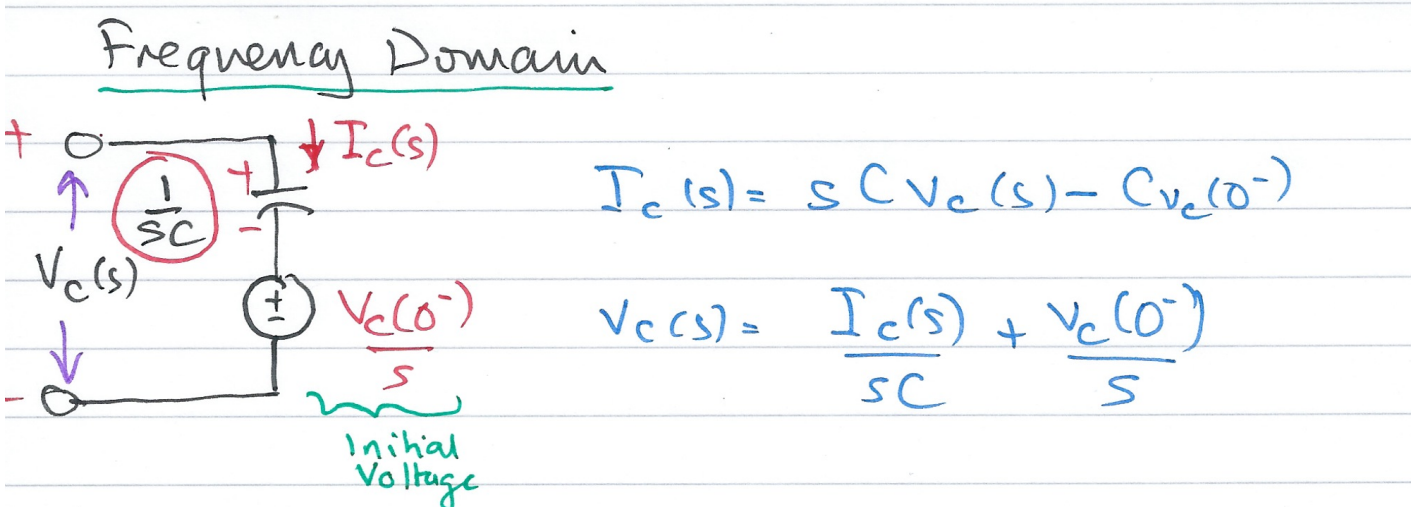 Frequency Domain
+
I_c(s)
1/sC
+
-
V_c(s)
±
V_c(0⁻)/s
-
Initial
Voltage
I_c(s) = sCV_c(s) - Cv_c(0⁻)
V_c(s) = I_c(s)/sC + v_c(0⁻)/s